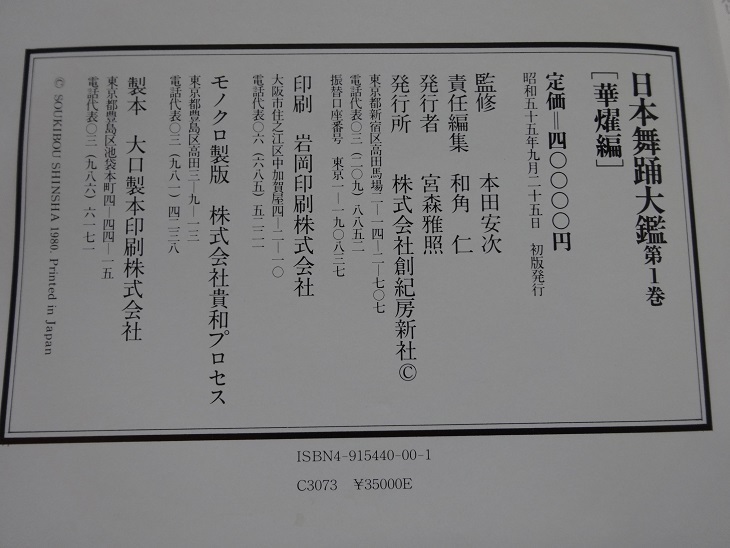 日本舞踊大鑑 第1巻
［華燿編］
定価＝四〇〇〇〇円
昭和五十五年九月二十五日　初版発行
監修　本田安次
責任編集　和角　仁
発行者　宮森雅照
発行所　株式会社創紀房新社©
東京都新宿区高田馬場二―一四―二―七〇七
電話代表〇三（二〇九）八八五二
振替口座番号　東京一―一九〇八三七
印刷　岩岡印刷株式会社
大阪市住之江区中加賀屋四―二―一〇
電話代表〇六（六八五）五二二一
モノクロ製版　株式会社貴和プロセス
東京都豊島区高田三―九―一三
電話代表〇三（九八一）四二三八
製本　大口製本印刷株式会社
東京都豊島区池袋本町四―四四―一五
電話代表〇三（九八六）六一七一
© SOUKIBOU SHINSHA 1980. Printed in Japan
ISBN4-915440-00-1
C3073　¥35000E